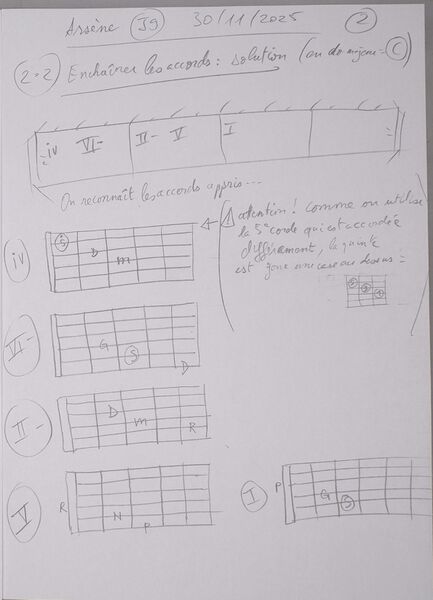 Arsène J9 30/11/2025 2
2.2 Enchaîner les accords : solution (en do majeur = C)
IV VI- II- V I
On reconnaît les accords appris...
! attention ! Comme on utilise
la 5e corde qui est accordée
différemment, la quinte
est joue une case au dessus =
IV S D m
VI- G S D
II- D m R
V R N P
I P G S